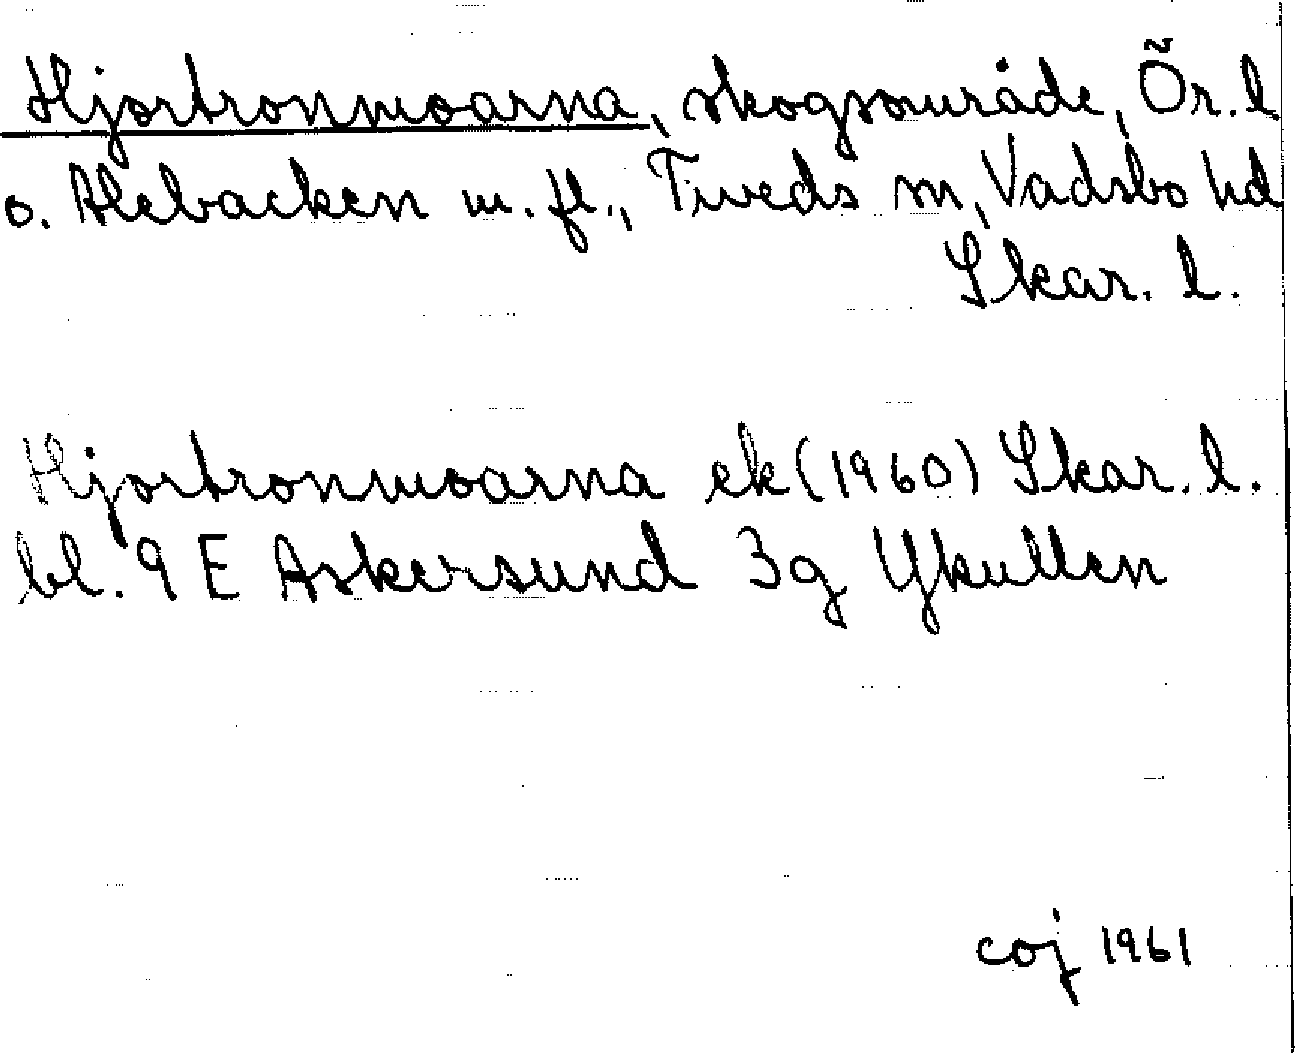 Hjortronmoarna, skogsområde, Ör. l
o. Alebacken m. fl., Tiveds sn, Vadsbo hd
Skar. l.
Hjortronmoarna ek (1960) Skar. l.
bl. 9 E Askersund 3g Ykullen
coj 1961